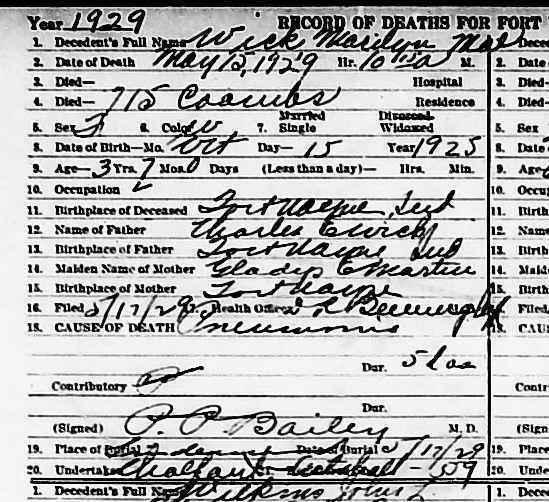 Year 1929 RECORD OF DEATHS FOR FORT
1. Decedent's Full Name Wick Marilyn Mae
2. Date of Death May 15, 1929 Hr. 10 A M.
3. Died— Hospital
4. Died— 715 Coombs Residence
Married Divorced
5. Sex F 6. Color W 7. Single Widowed
8. Date of Birth—Mo. Oct Day— 15 Year 1925
9. Age— 3 Yrs. 7 Mos. 0 Days (Less than a day)— Hrs. Min.
10. Occupation
11. Birthplace of Deceased Fort Wayne, Ind
12. Name of Father Charles C Wick
13. Birthplace of Father Fort Wayne Ind
14. Maiden Name of Mother Gladys C Martin
15. Birthplace of Mother Fort Wayne
16. Filed 5/17/29 Health Officer
18. CAUSE OF DEATH Pneumonia
Dur. 5
Contributory
Dur.
(Signed) P. P. Bailey M. D.
19. Place of Burial Date of Burial 5/17/29
20. Undertaker
1. Decedent's Full Name Wilkins John
2. Date
3. Died—
4. Died—
5. Sex
8. Date
9. Age
10. Occu
11. Birth
12. Name
13. Birth
14. Maid
15. Birth
16. Filed
18. CAUS
Contr
(Sign
19. Place
20. Under
1. Dece